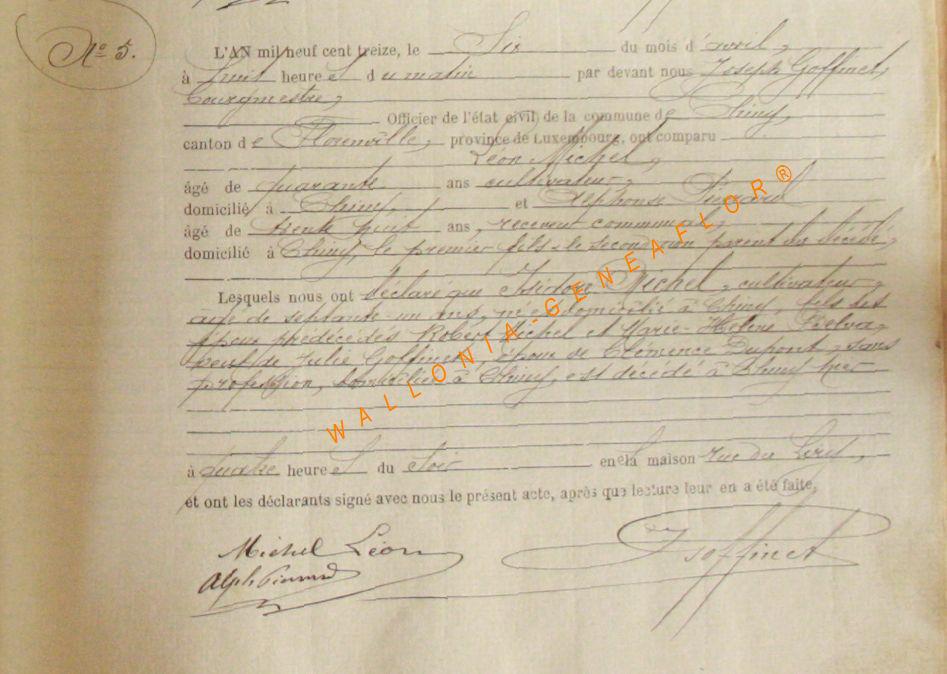 N° 5.
L'AN mil neuf cent treize, le Six du mois d'avril,
à huit heures du matin par devant nous Joseph Goffinet,
bourgmestre,
Officier de l'état civil de la commune de Chiny,
canton de Florenville, province de Luxembourg, ont comparu
Léon Michel,
âgé de quarante ans cultivateur,
domicilié à Chiny, et Alphonse
âgé de trente neuf ans, receveur communal,
domicilié à Chiny, le premier fils le second non parent du décédé,
Lesquels nous ont déclaré que Isidore Michel, cultivateur,
âgé de septante un ans, né et domicilié à Chiny, fils des
époux prédécédés Robert Michel et Marie-Hélène
veuf de Julie Goffinet, époux de Clémence Dupont, sans
profession, domiciliée à Chiny, est décédé à Chiny hier
à quatre heures du soir en la maison rue du
et ont les déclarants signé avec nous le présent acte, après que lecture leur en a été faite,
Michel Léon
Goffinet
Alph
WALLONIA-GENEAFLOR®